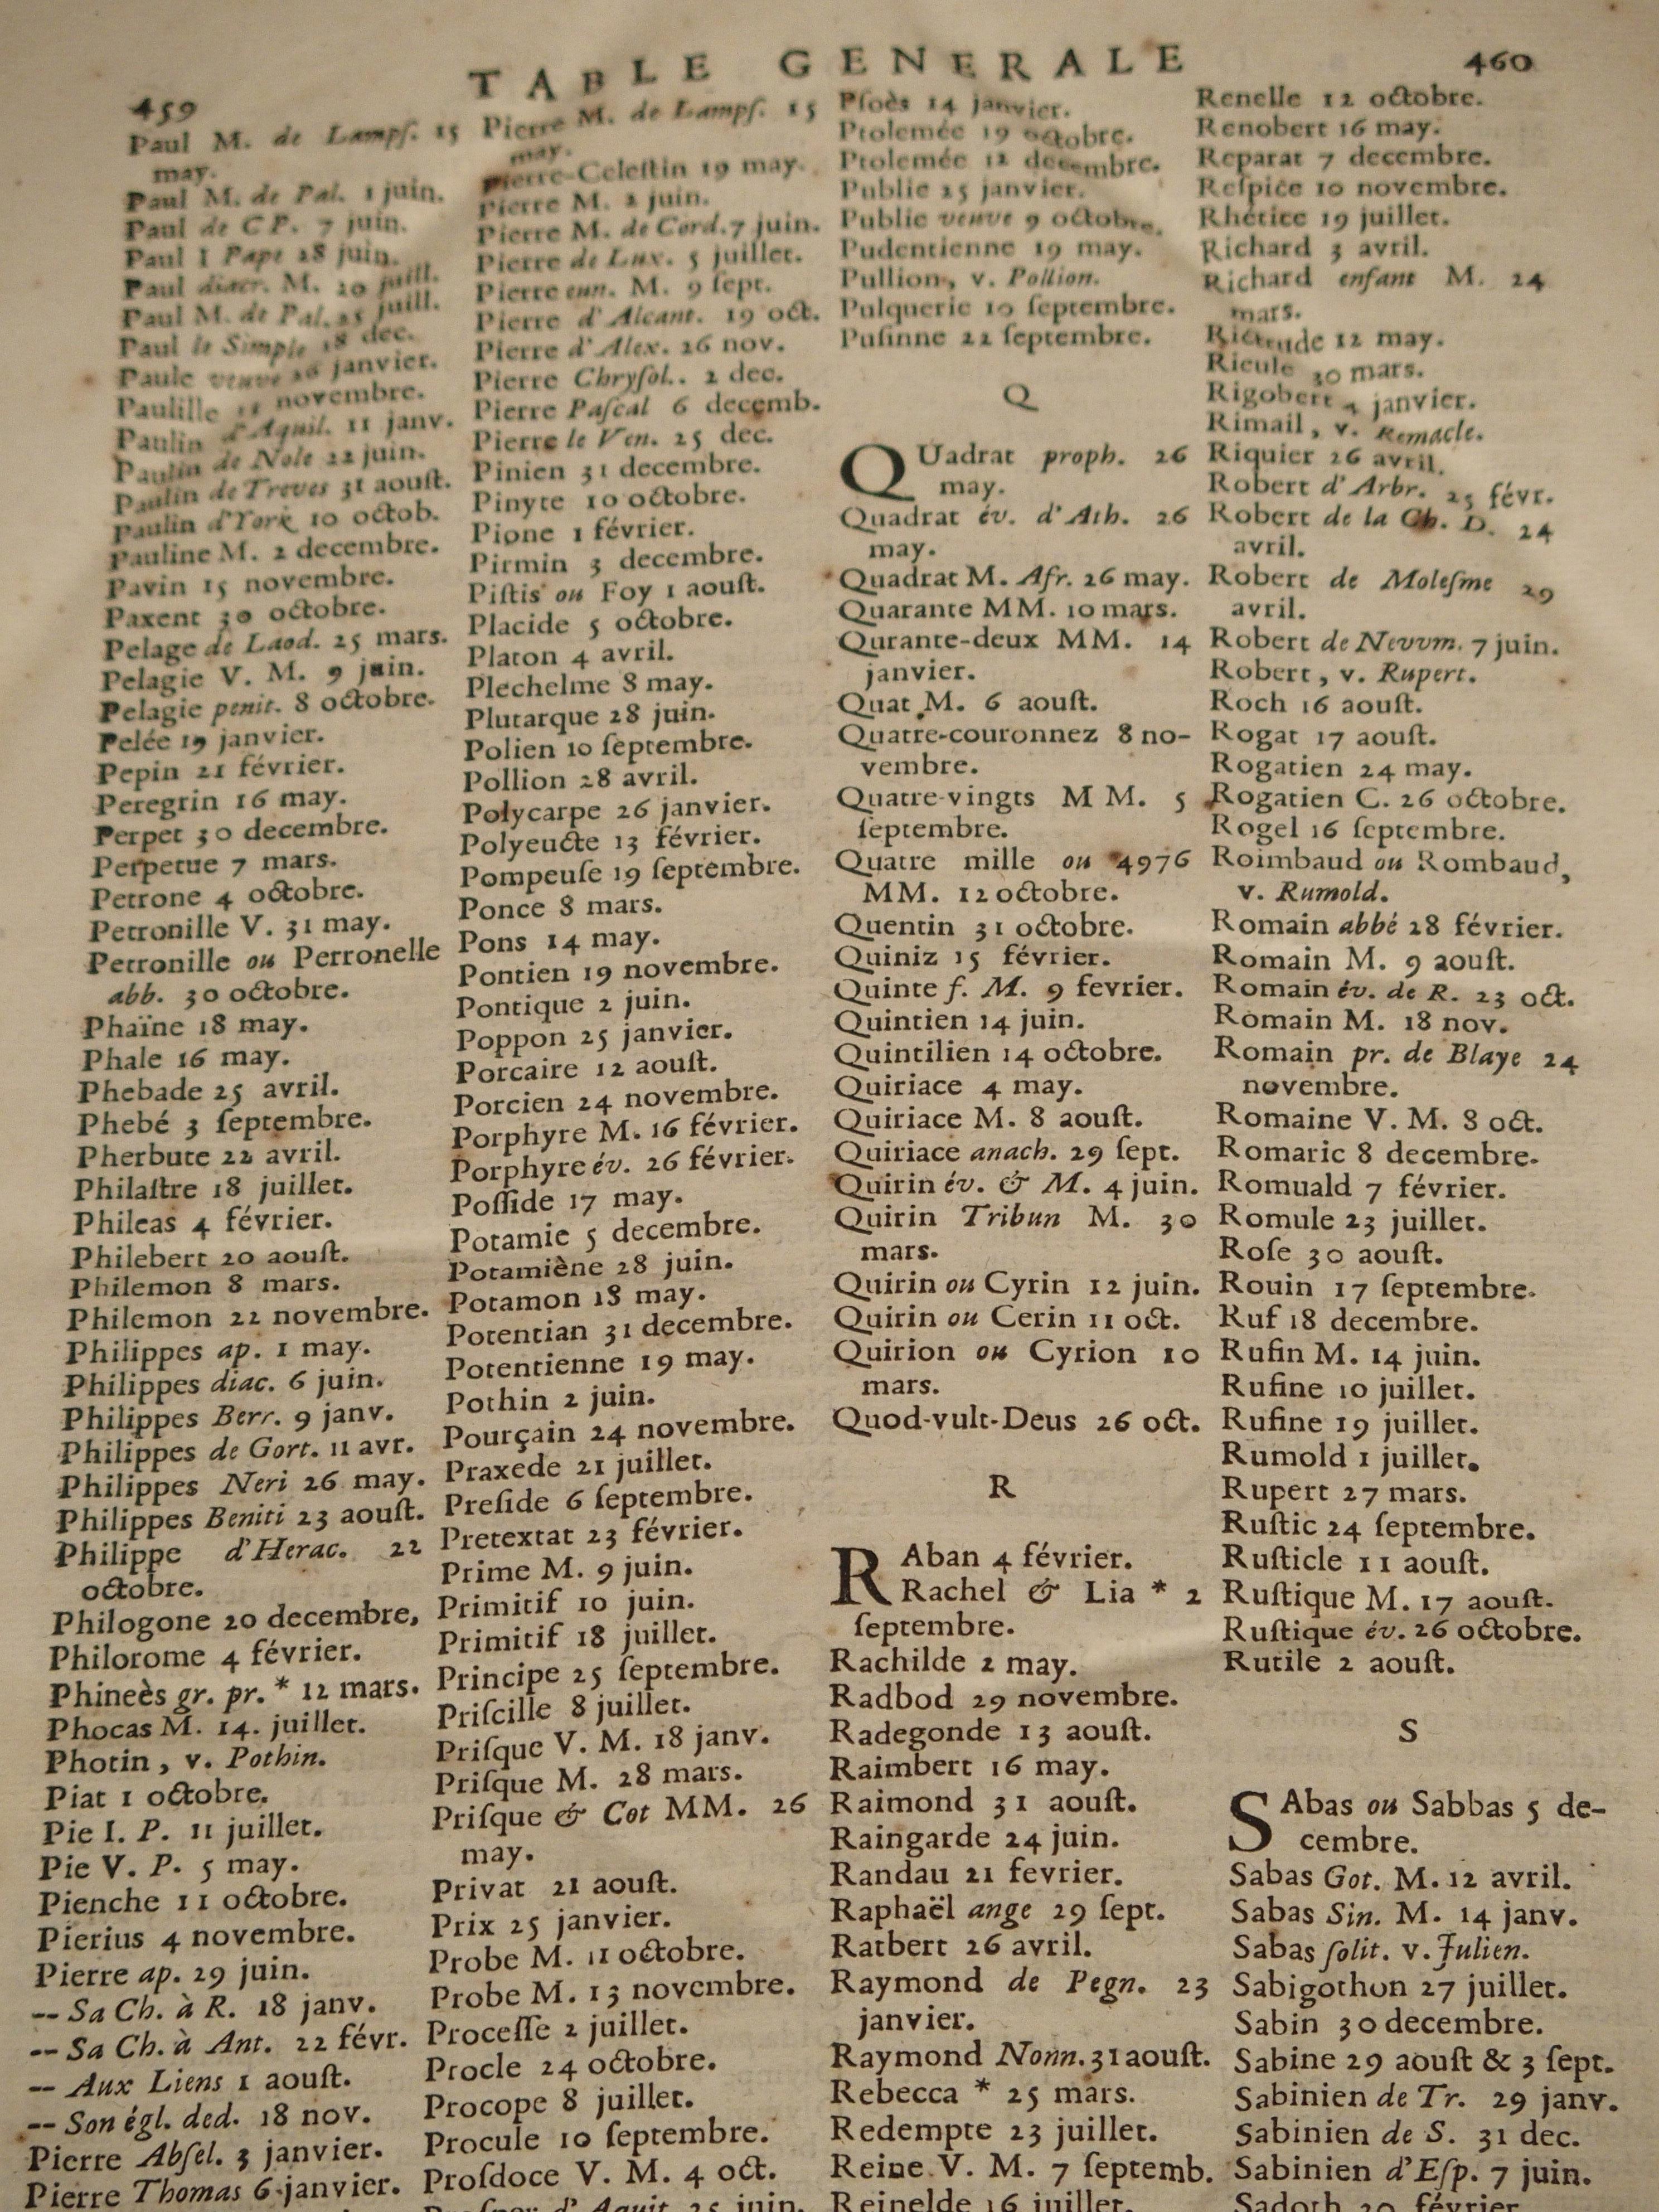 TABLE GENERALE
459
Paul M. de Lampſ. 15
may.
Paul M. de Pal. 1 juin.
Paul de CP. 7 juin.
Paul I Pape 28 juin.
Paul diacr. M. 20 juill.
Paul M. de Pal. 25 juill.
Paul le Simple 18 dec.
Paule veuve 26 janvier.
Paulille novembre.
Paulin d'Aquil. 11 janv.
Paulin de Nole 22 juin.
Paulin de Treves 31 aouſt.
Paulin d'York 10 octob.
Pauline M. 2 decembre.
Pavin 15 novembre.
Paxent 30 octobre.
Pelage de Laod. 25 mars.
Pelagie V. M. 9 juin.
Pelagie penit. 8 octobre.
Pelée 19 janvier.
Pepin 21 février.
Peregrin 16 may.
Perpet 30 decembre.
Perpetue 7 mars.
Petrone 4 octobre.
Petronille V. 31 may.
Petronille ou Perronelle
abb. 30 octobre.
Phaïne 18 may.
Phale 16 may.
Phebade 25 avril.
Phebé 3 ſeptembre.
Pherbute 22 avril.
Philaſtre 18 juillet.
Phileas 4 février.
Philebert 20 aouſt.
Philemon 8 mars.
Philemon 22 novembre.
Philippes ap. 1 may.
Philippes diac. 6 juin.
Philippes Berr. 9 janv.
Philippes de Gort. 11 avr.
Philippes Neri 26 may.
Philippes Beniti 23 aouſt.
Philippe d'Herac. 22
octobre.
Philogone 20 decembre,
Philorome 4 février.
Phineès gr. pr. * 12 mars.
Phocas M. 14. juillet.
Photin, v. Pothin.
Piat 1 octobre.
Pie I. P. 11 juillet.
Pie V. P. 5 may.
Pienche 11 octobre.
Pierius 4 novembre.
Pierre ap. 29 juin.
-- Sa Ch. à R. 18 janv.
-- Sa Ch. à Ant. 22 févr.
-- Aux Liens 1 aouſt.
-- Son égl. ded. 18 nov.
Pierre Abſel. 3 janvier.
Pierre Thomas 6 janvier.
Pierre M. de Lampſ. 15
may.
Pierre-Celeſtin 19 may.
Pierre M. 2 juin.
Pierre M. de Cord. 7 juin.
Pierre de Lux. 5 juillet.
Pierre eun. M. 9 ſept.
Pierre d'Alcant. 19 oct.
Pierre d'Alex. 26 nov.
Pierre Chryſol.. 2 dec.
Pierre Paſcal 6 decemb.
Pierre le Ven. 25 dec.
Pinien 31 decembre.
Pinyte 10 octobre.
Pione 1 février.
Pirmin 3 decembre.
Piſtis ou Foy 1 aouſt.
Placide 5 octobre.
Platon 4 avril.
Plechelme 8 may.
Plutarque 28 juin.
Polien 10 ſeptembre.
Pollion 28 avril.
Polycarpe 26 janvier.
Polyeucte 13 février.
Pompeuſe 19 ſeptembre.
Ponce 8 mars.
Pons 14 may.
Pontien 19 novembre.
Pontique 2 juin.
Poppon 25 janvier.
Porcaire 12 aouſt.
Porcien 24 novembre.
Porphyre M. 16 février.
Porphyre év. 26 février.
Poſſide 17 may.
Potamie 5 decembre.
Potamiène 28 juin.
Potamon 18 may.
Potentian 31 decembre.
Potentienne 19 may.
Pothin 2 juin.
Pourçain 24 novembre.
Praxede 21 juillet.
Preſide 6 ſeptembre.
Pretextat 23 février.
Prime M. 9 juin.
Primitif 10 juin.
Primitif 18 juillet.
Principe 25 ſeptembre.
Priſcille 8 juillet.
Priſque V. M. 18 janv.
Priſque M. 28 mars.
Priſque & Cot MM. 26
may.
Privat 21 aouſt.
Prix 25 janvier.
Probe M. 11 octobre.
Probe M. 13 novembre.
Proceſſe 2 juillet.
Procle 24 octobre.
Procope 8 juillet.
Procule 10 ſeptembre.
Proſdoce V. M. 4 oct.
Proſper d'Aquit. 25 juin.
460
Pſoès 14 janvier.
Ptolemée 19 octobre.
Ptolemée 12 decembre.
Publie 25 janvier.
Publie veuve 9 octobre.
Pudentienne 19 may.
Pullion, v. Pollion.
Pulquerie 10 ſeptembre.
Puſinne 22 ſeptembre.
Q
QUadrat proph. 26
may.
Quadrat év. d'Ath. 26
may.
Quadrat M. Afr. 26 may.
Quarante MM. 10 mars.
Qurante-deux MM. 14
janvier.
Quat M. 6 aouſt.
Quatre-couronnez 8 no-
vembre.
Quatre-vingts MM. 5
ſeptembre.
Quatre mille ou 4976
MM. 12 octobre.
Quentin 31 octobre.
Quiniz 15 février.
Quinte f. M. 9 fevrier.
Quintien 14 juin.
Quintilien 14 octobre.
Quiriace 4 may.
Quiriace M. 8 aouſt.
Quiriace anach. 29 ſept.
Quirin év. & M. 4 juin.
Quirin Tribun M. 30
mars.
Quirin ou Cyrin 12 juin.
Quirin ou Cerin 11 oct.
Quirion ou Cyrion 10
mars.
Quod-vult-Deus 26 oct.
R
RAban 4 février.
Rachel & Lia * 2
ſeptembre.
Rachilde 2 may.
Radbod 29 novembre.
Radegonde 13 aouſt.
Raimbert 16 may.
Raimond 31 aouſt.
Raingarde 24 juin.
Randau 21 fevrier.
Raphaël ange 29 ſept.
Ratbert 26 avril.
Raymond de Pegn. 23
janvier.
Raymond Nonn. 31 aouſt.
Rebecca * 25 mars.
Redempte 23 juillet.
Reine V. M. 7 ſeptemb.
Reinelde 16 juillet.
Renelle 12 octobre.
Renobert 16 may.
Reparat 7 decembre.
Reſpice 10 novembre.
Rhetice 19 juillet.
Richard 3 avril.
Richard enfant M. 24
mars.
Rictrude 12 may.
Rieule 30 mars.
Rigobert 4 janvier.
Rimail, v. Remacle.
Riquier 26 avril.
Robert d'Arbr. 25 févr.
Robert de la Ch. D. 24
avril.
Robert de Moleſme 29
avril.
Robert de Nevvm. 7 juin.
Robert, v. Rupert.
Roch 16 aouſt.
Rogat 17 aouſt.
Rogatien 24 may.
Rogatien C. 26 octobre.
Rogel 16 ſeptembre.
Roimbaud ou Rombaud,
v. Rumold.
Romain abbé 28 février.
Romain M. 9 aouſt.
Romain év. de R. 23 oct.
Romain M. 18 nov.
Romain pr. de Blaye 24
novembre.
Romaine V. M. 8 oct.
Romaric 8 decembre.
Romuald 7 février.
Romule 23 juillet.
Roſe 30 aouſt.
Rouin 17 ſeptembre.
Ruf 18 decembre.
Rufin M. 14 juin.
Rufine 10 juillet.
Rufine 19 juillet.
Rumold 1 juillet.
Rupert 27 mars.
Ruſtic 24 ſeptembre.
Ruſticle 11 aouſt.
Ruſtique M. 17 aouſt.
Ruſtique év. 26 octobre.
Rutile 2 aouſt.
S
SAbas ou Sabbas 5 de-
cembre.
Sabas Got. M. 12 avril.
Sabas Sin. M. 14 janv.
Sabas ſolit. v. Julien.
Sabigothon 27 juillet.
Sabin 30 decembre.
Sabine 29 aouſt & 3 ſept.
Sabinien de Tr. 29 janv.
Sabinien de S. 31 dec.
Sabinien d'Eſp. 7 juin.
Sadoth 20 février